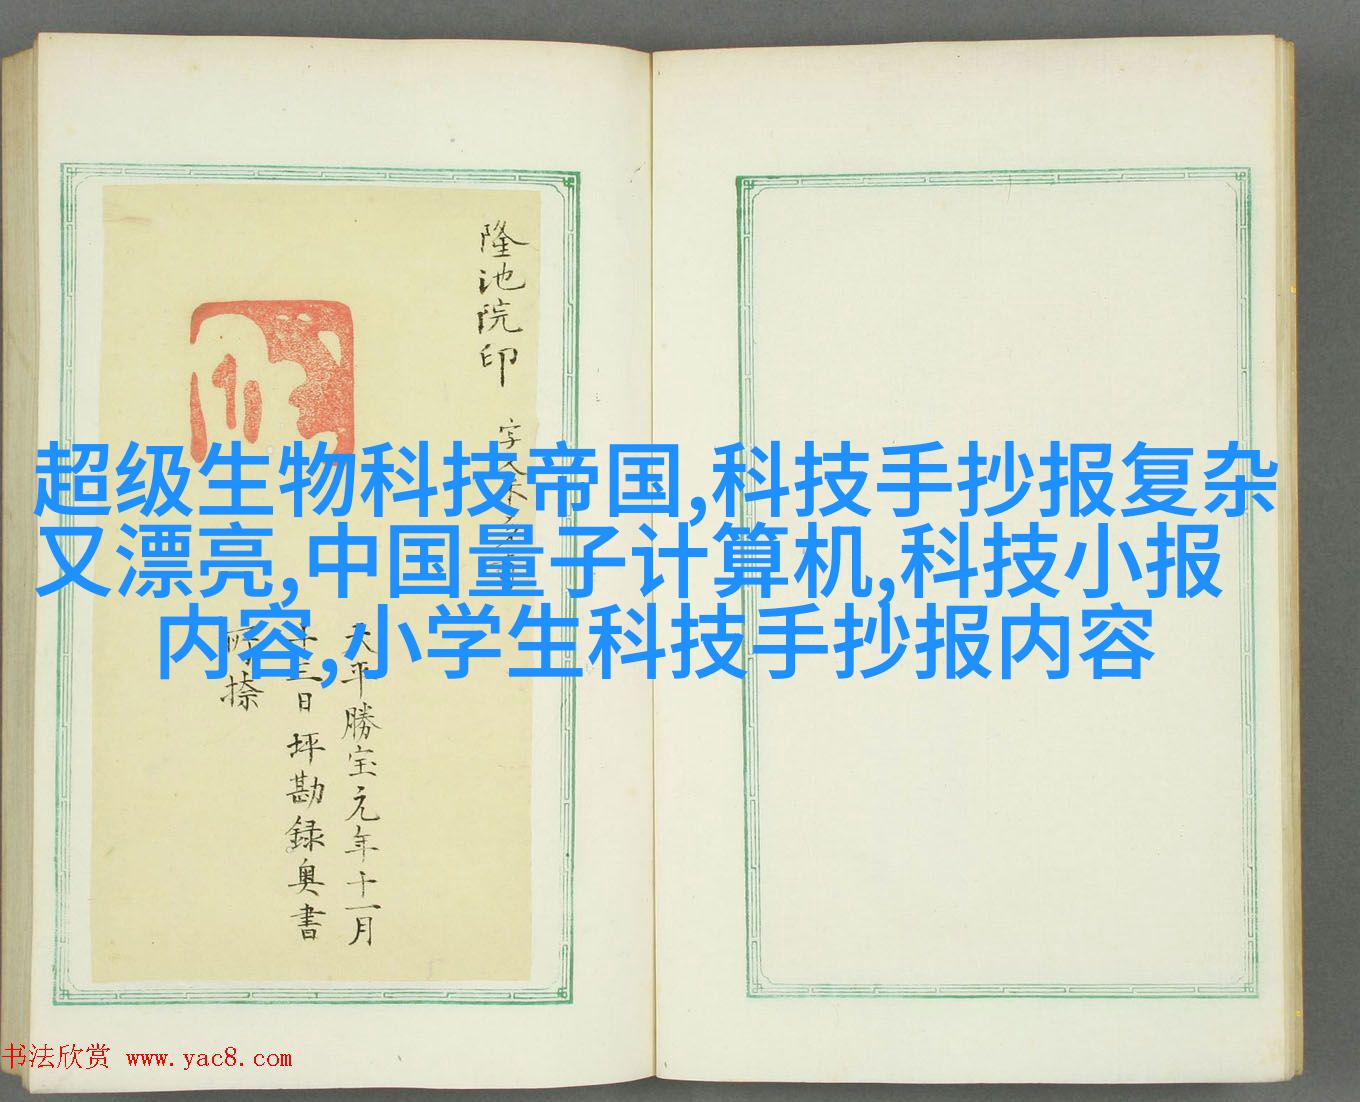 隆池院印
天平勝宝元年十一月
十三日坪勘録奥書
所捺
超级生物科技帝国,科技手抄报复杂
又漂亮,中国量子计算机,科技小报
内容,小学生科技手抄报内容
书法欣赏 www.yac8.com